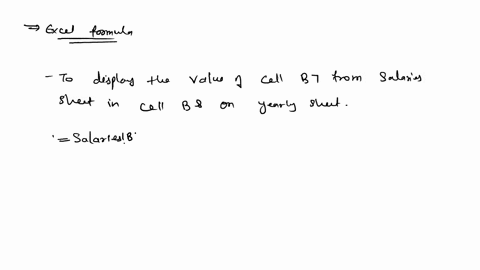 ⇒ Excel formula
- To display the value of cell B7 from Salaries
sheet in cell B8 on yearly sheet.
=Salaries!B